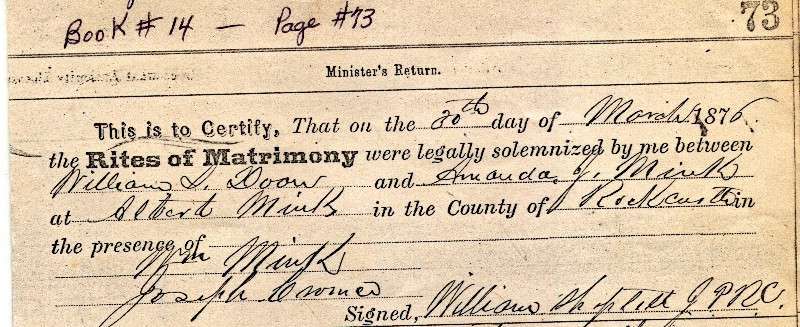 Book # 14 — Page #73
73
Minister's Return.
This is to Certify, That on the 30th day of March 1876
the Rites of Matrimony were legally solemnized by me between
William D. and Amanda J. Mink
at Albert Mink in the County of Rockcastle in
the presence of
Wm Mink
Joseph Cromer
Signed, William J.P.R.C.